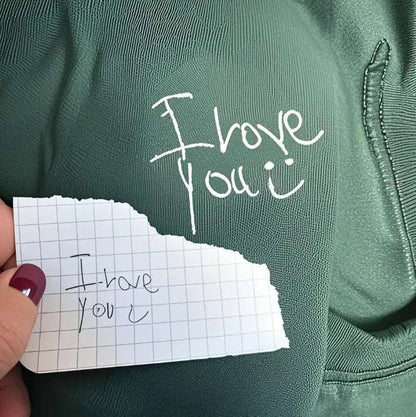 I love
You :)
I love
You :)